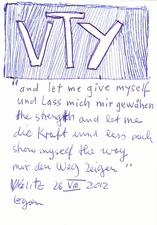 VTY
"and let me give myself
und Lass mich mir gewähen
the strength and let me
die Kraft und lass mich
show myself the way
mir den Weg Zeigen"
26 VIII 2012